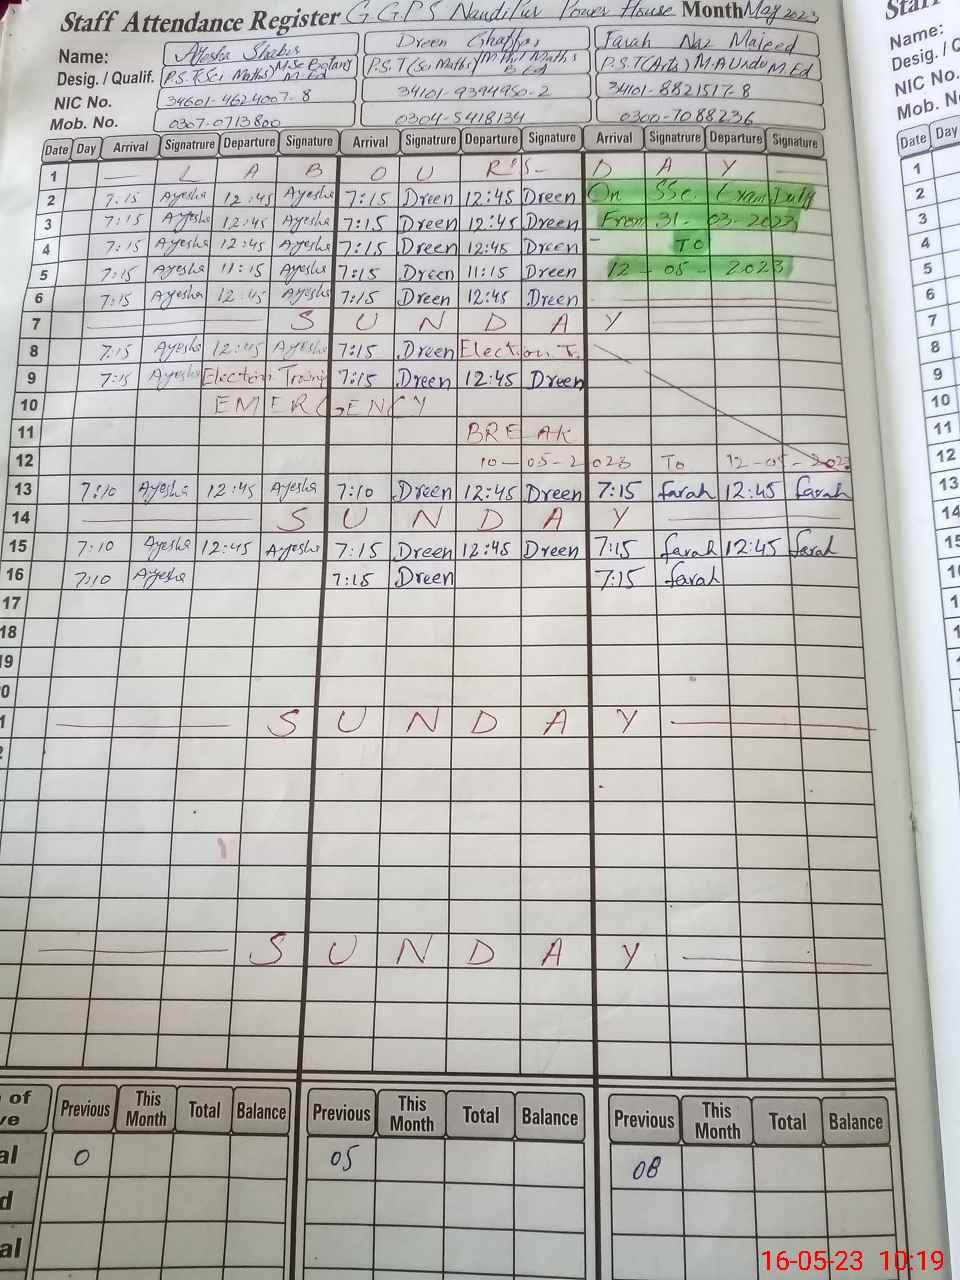 Staff Attendance Register G.G.P.S Nandipur Power House Month May 2023
Name: Ayesha Shabir Dreen Ghaffar Farah Naz Majeed
Desig. / Qualif. P.S.T(Sci Maths) M.Sc Botany M.Ed P.S.T(Sci Maths) Maths B.Ed P.S.T(Arts) M.A Urdu M.Ed
NIC No. 34601-4624007-8 34101-9394950-2 34101-8821517-8
Mob. No. 0307-0713800 0304-5418134 0300-7088236
Date Day Arrival Signatrure Departure Signature Arrival Signatrure Departure Signature Arrival Signatrure Departure Signature
1 L A B O U R'S D A Y
2 7:15 Ayesha 12:45 Ayesha 7:15 Dreen 12:45 Dreen On SSC. Exam Duty
3 7:15 Ayesha 12:45 Ayesha 7:15 Dreen 12:45 Dreen From 31-03-2023
4 7:15 Ayesha 12:45 Ayesha 7:15 Dreen 12:45 Dreen TO
5 7:15 Ayesha 11:15 Ayesha 7:15 Dreen 11:15 Dreen 12-05-2023
6 7:15 Ayesha 12:45 Ayesha 7:15 Dreen 12:45 Dreen
7 S U N D A Y
8 7:15 Ayesha 12:45 Ayesha 7:15 Dreen Election T.
9 7:15 Ayesha Election Training 7:15 Dreen 12:45 Dreen
10 EMERGENCY
11 BREAK
12 10-05-2023 To 12-05-2023
13 7:10 Ayesha 12:45 Ayesha 7:10 Dreen 12:45 Dreen 7:15 farah 12:45 farah
14 S U N D A Y
15 7:10 Ayesha 12:45 Ayesha 7:15 Dreen 12:45 Dreen 7:15 farah 12:45 farah
16 7:10 Ayesha 7:15 Dreen 7:15 farah
17
18
19
0
1 S U N D A Y
2
S U N D A Y
of
ve
Previous This Month Total Balance Previous This Month Total Balance Previous This Month Total Balance
al 0 05 08
d
al
Name:
Desig. /
NIC No.
Mob. No.
Date Day
1
2
3
4
5
6
7
8
9
10
11
12
13
14
15
16-05-23 10:19